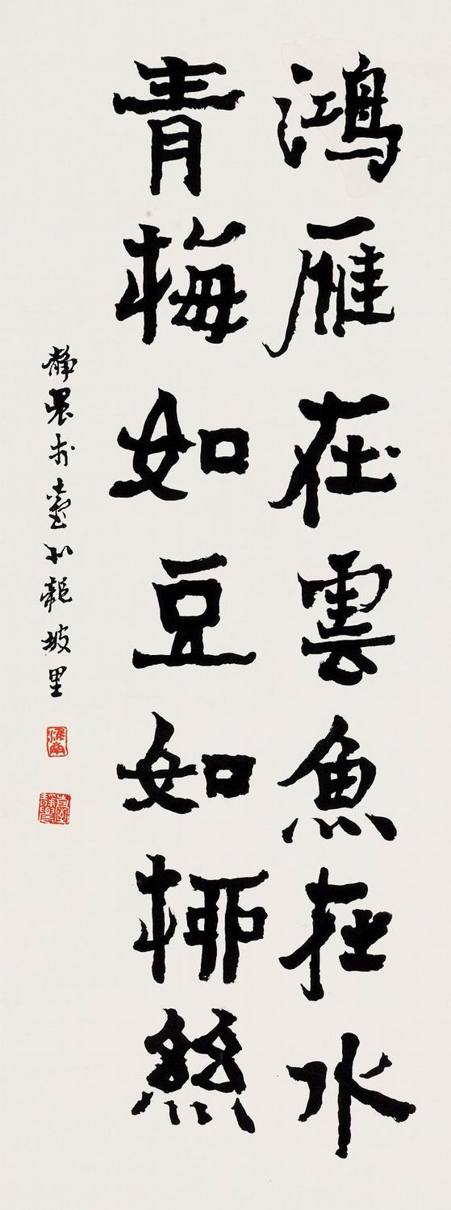 鴻雁在雲魚在水
青梅如豆如柳絲
靜農於臺北龍坡里